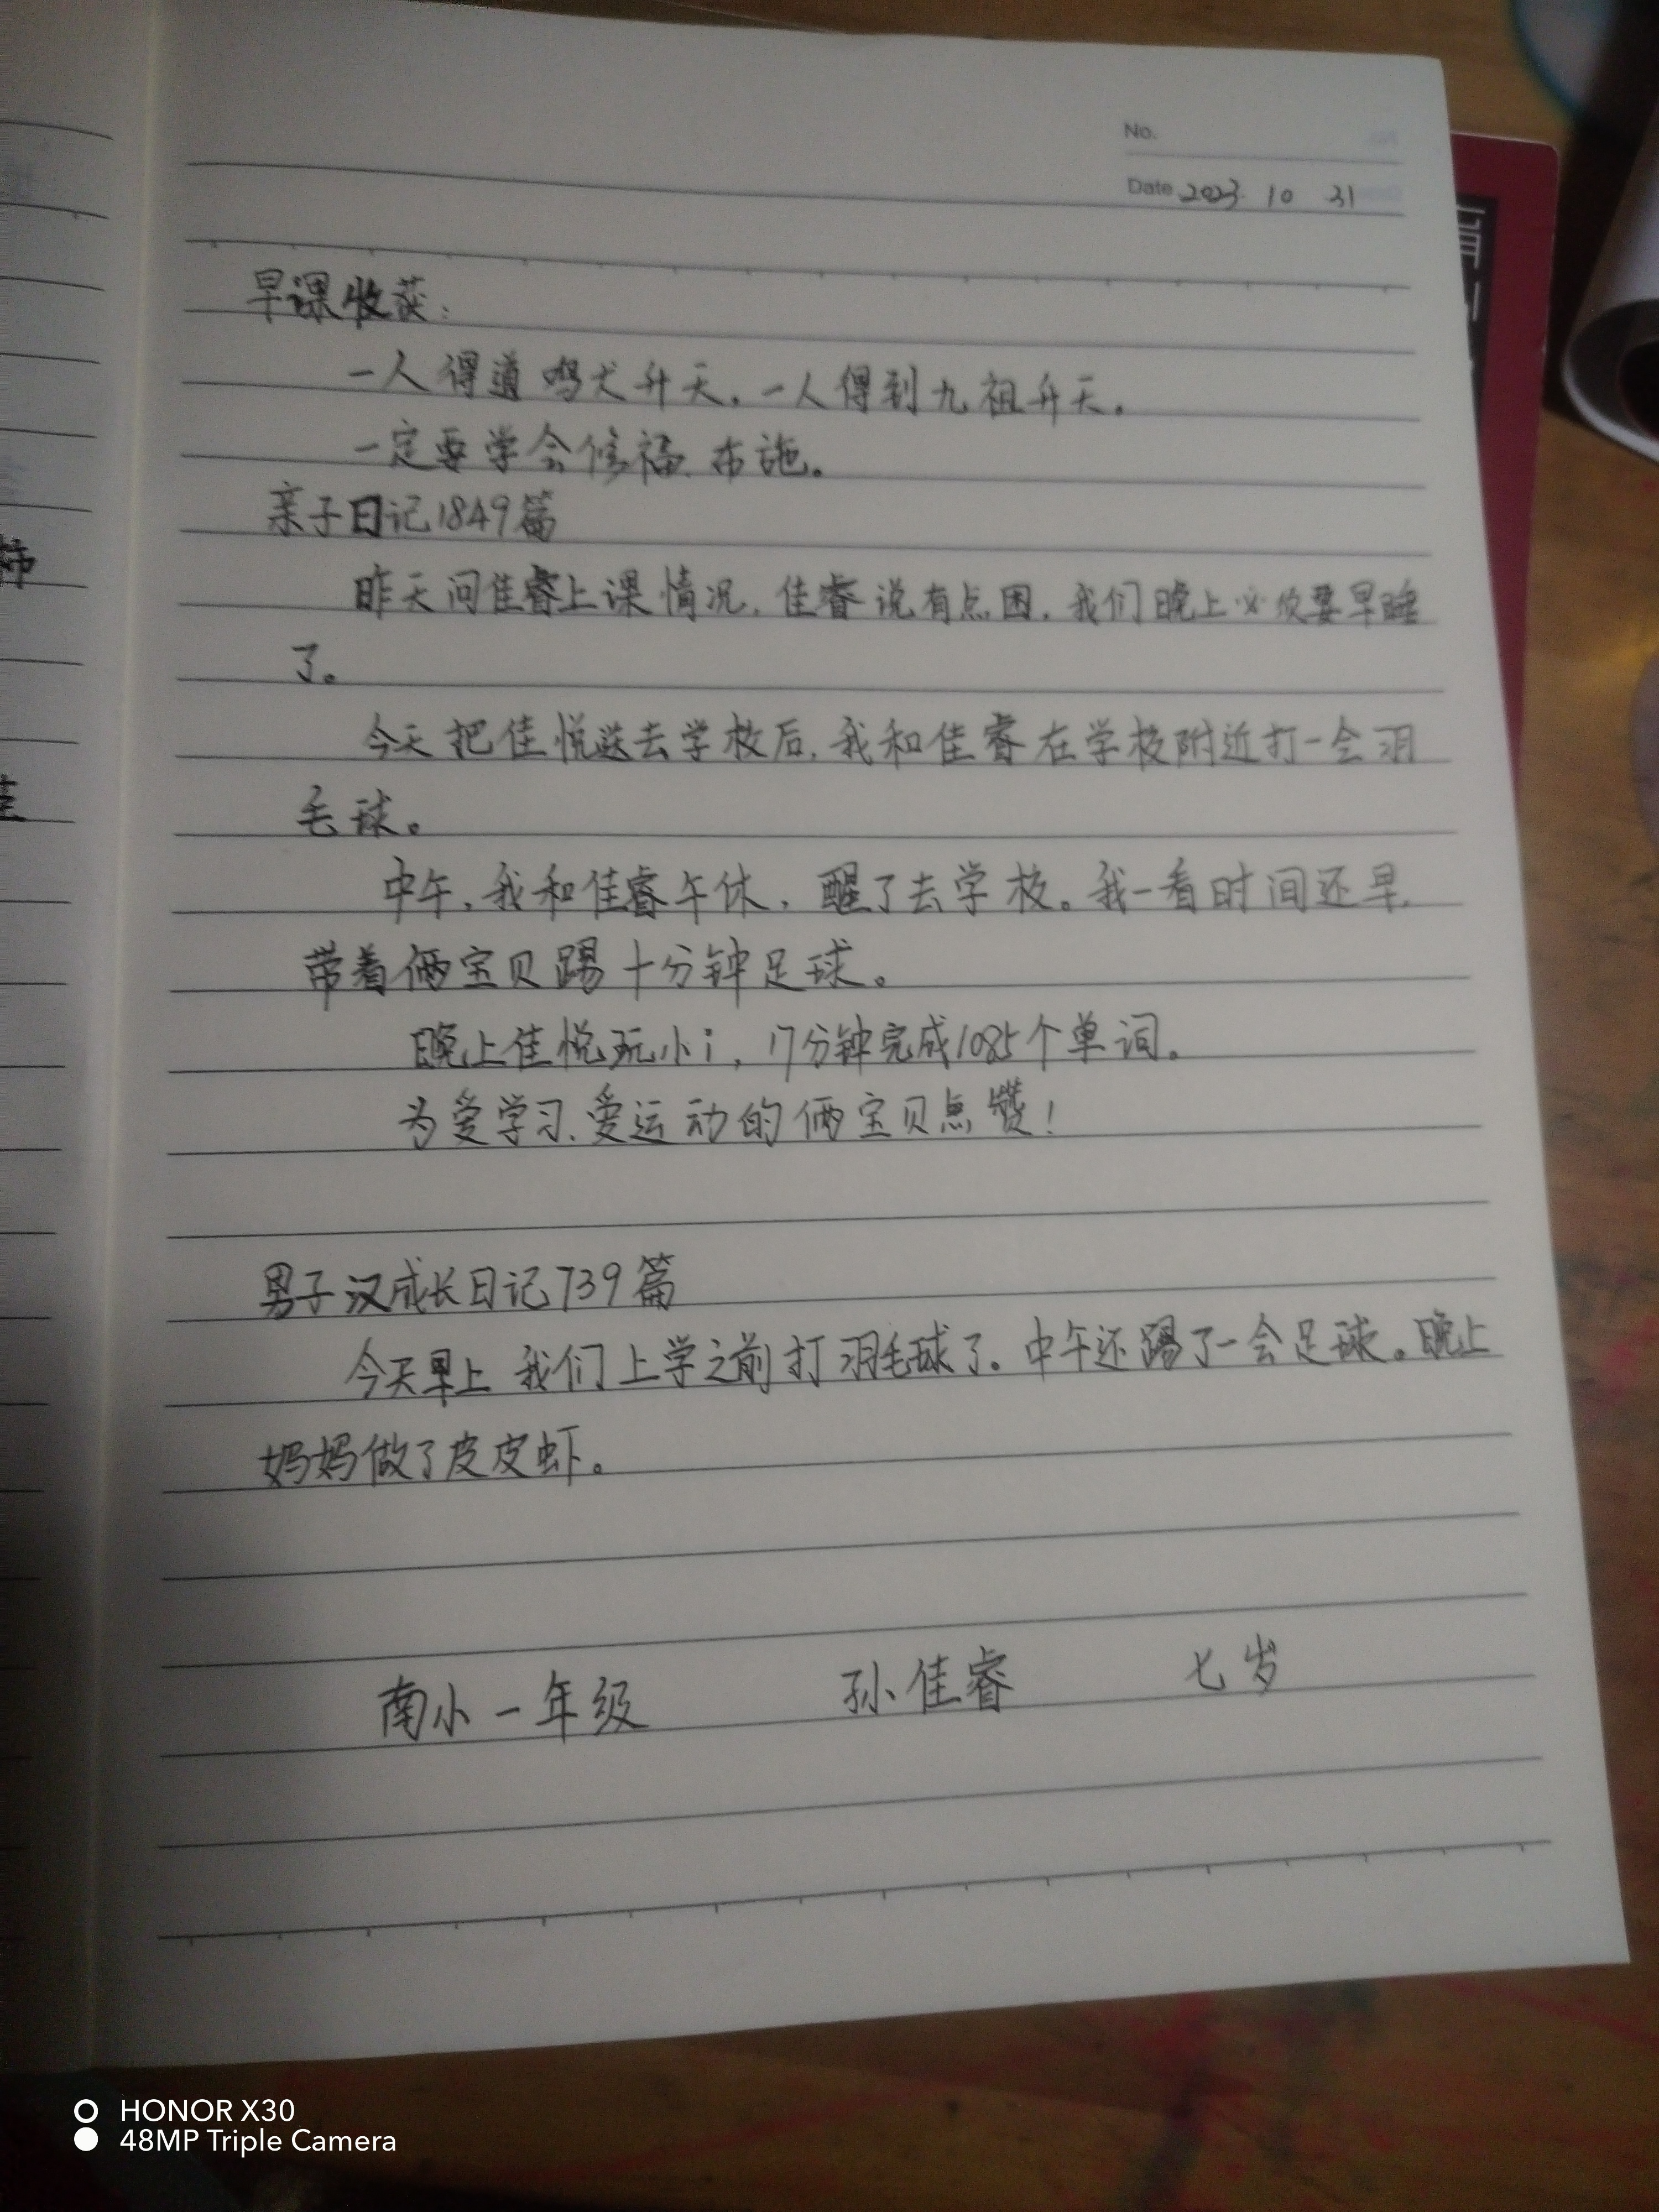 No.
Date 2023 10 31
早课收获:
一人得道鸡犬升天。一人得到九祖升天。
一定要学会修福、布施。
亲子日记1849篇
昨天问佳睿上课情况,佳睿说有点困,我们晚上必须要早睡
了。
今天把佳悦送去学校后,我和佳睿在学校附近打一会羽
毛球。
中午,我和佳睿午休,醒了去学校。我一看时间还早,
带着俩宝贝踢十分钟足球。
晚上佳悦玩小i,17分钟完成1085个单词。
为爱学习、爱运动的俩宝贝点赞!
男子汉成长日记739篇
今天早上我们上学之前打羽毛球了。中午还踢了一会足球。晚上
妈妈做了皮皮虾。
南小一年级 孙佳睿 七岁
HONOR X30
48MP Triple Camera